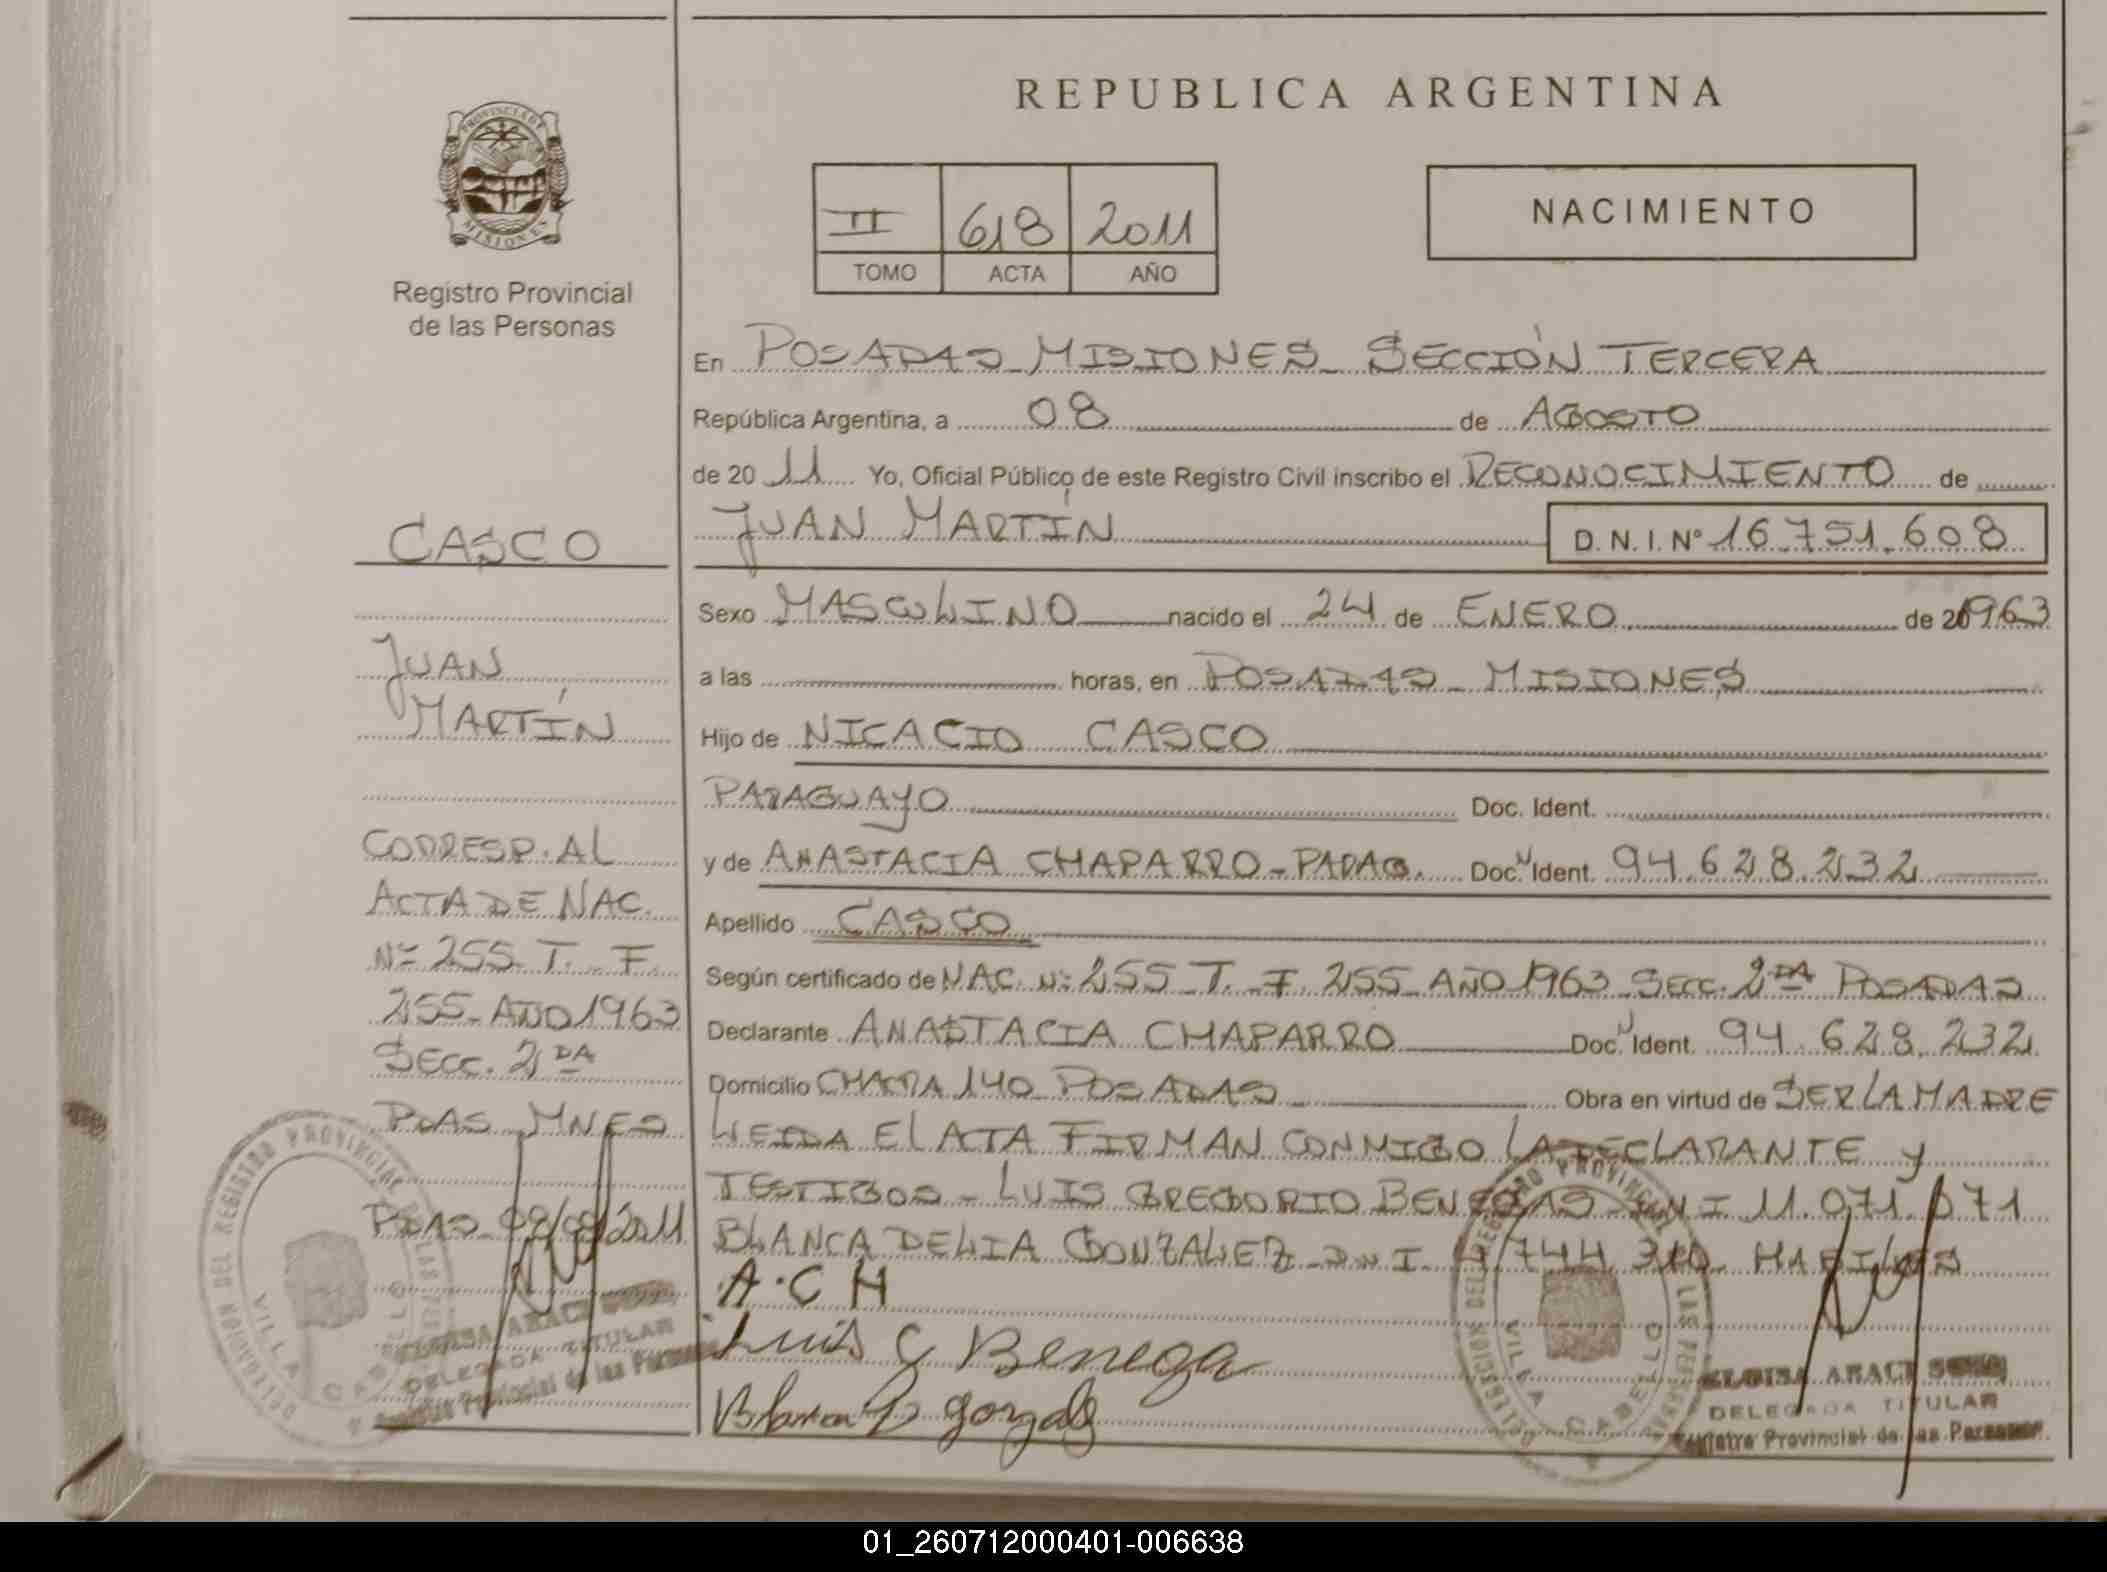 REPUBLICA ARGENTINA
PROVINCIA DE
MISIONES
Registro Provincial
de las Personas
II 618 2011
TOMO ACTA AÑO
NACIMIENTO
En POSADAS - MISIONES - SECCIÓN TERCERA
República Argentina, a 08 de AGOSTO
de 20 11 Yo, Oficial Público de este Registro Civil inscribo el RECONOCIMIENTO de
JUAN MARTÍN D. N. I. Nº 16.751.608
Sexo MASCULINO nacido el 24 de ENERO de 1963
a las horas, en POSADAS - MISIONES
Hijo de NICACIO CASCO
PARAGUAYO Doc. Ident.
y de ANASTACIA CHAPARRO - PARAG. Doc. Ident. 94.628.232
Apellido CASCO
Según certificado de NAC. Nº 255 T. F. 255 AÑO 1963 SECC. 2DA POSADAS
Declarante ANASTACIA CHAPARRO Doc. Ident. 94.628.232
Domicilio CHACRA 140 POSADAS Obra en virtud de SER LA MADRE
LEIDA EL ACTA FIRMAN CONMIGO LA DECLARANTE Y
TESTIGOS - LUIS GREGORIO BENEGAS DNI 11.071.071
BLANCA DELIA GONZALEZ DNI HABILES
A. C H
Luis G Benega
Blanca D gonzalez
CASCO
JUAN
MARTÍN
CORRESP. AL
ACTA DE NAC.
Nº 255 T. F.
255 - AÑO 1963
SECC. 2DA
PDAS MNES
PDAS 08/08/2011
DELEGACION DEL REGISTRO PROVINCIAL DE LAS PERSONAS
VILLA CABELLO
ELOISA ARACI
DELEGADA TITULAR
Registro Provincial de las Personas
DELEGACION DEL REGISTRO PROVINCIAL DE LAS PERSONAS
VILLA CABELLO
ELOISA ARACI
DELEGADA TITULAR
Registro Provincial de las Personas
01_260712000401-006638